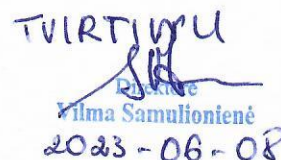 TVIRTINU
Direktorė
Vilma Samulionienė
2023-06-08